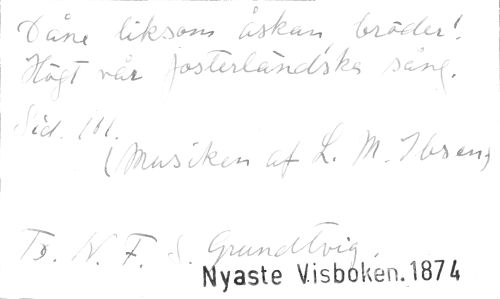 Dåne liksom åskan, bröder!
Högt vår fosterländska sång.
Sid. 101.
(Musiken af L. M. Ibsen)
N. F. S. Grundtvig.
Nyaste Visboken. 1874